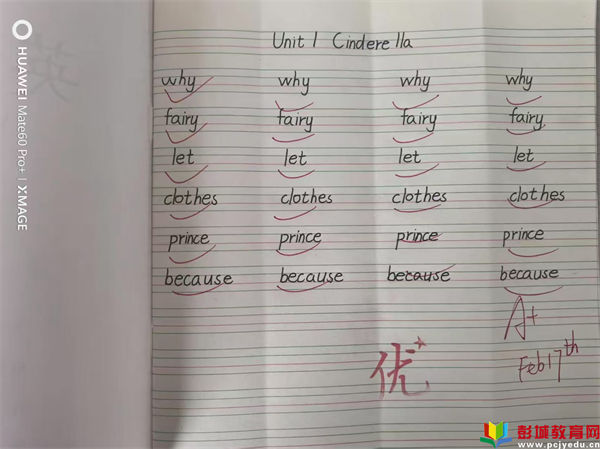 HUAWEI Mate60 Pro+ | XMAGE
英
Unit 1 Cinderella
why why why why
fairy fairy fairy fairy
let let let let
clothes clothes clothes clothes
prince prince prince prince
because because because because
A+
优+
Feb 17th
彭城教育网
www.pcjyedu.cn